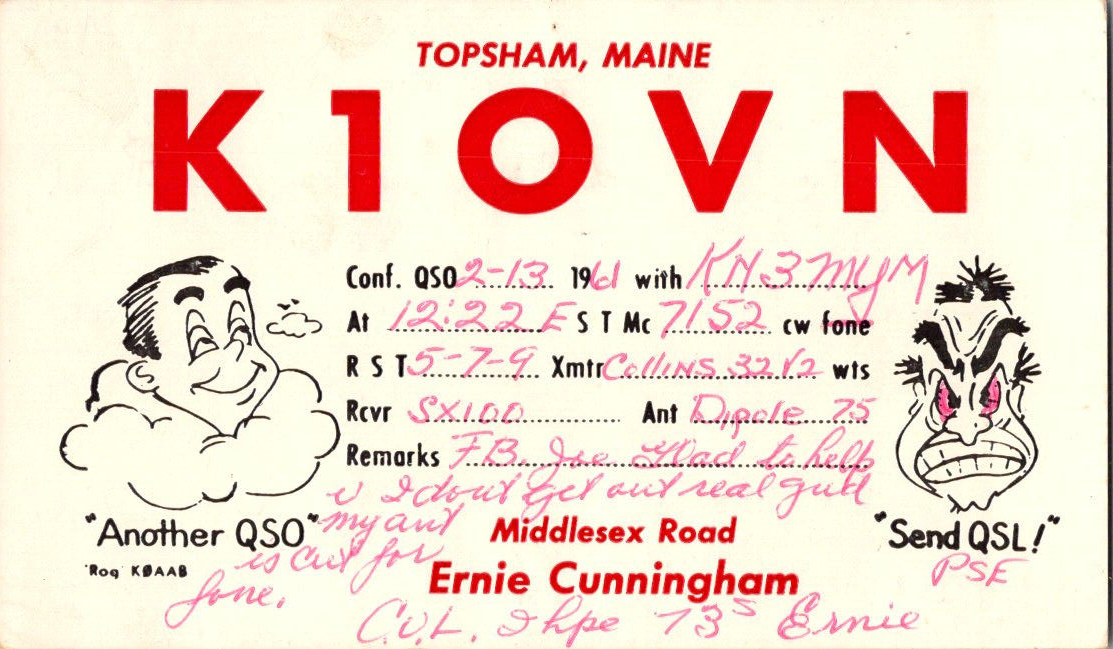 TOPSHAM, MAINE
K1OVN
Conf. QSO 2-13 1961 with KN3MYM
At 12:22 E S T Mc 7152 cw fone
R S T 5-7-9 Xmtr Collins 32V2 wts
Rcvr SX100 Ant Dipole 75
Remarks F.B. Joe Glad to help
u I dont get out real gud
my ant
is cut for
fone.
"Another QSO"
'Rog' KØAAB
Middlesex Road
Ernie Cunningham
"Send QSL!"
PSE
C.U.L. I hpe 73s Ernie